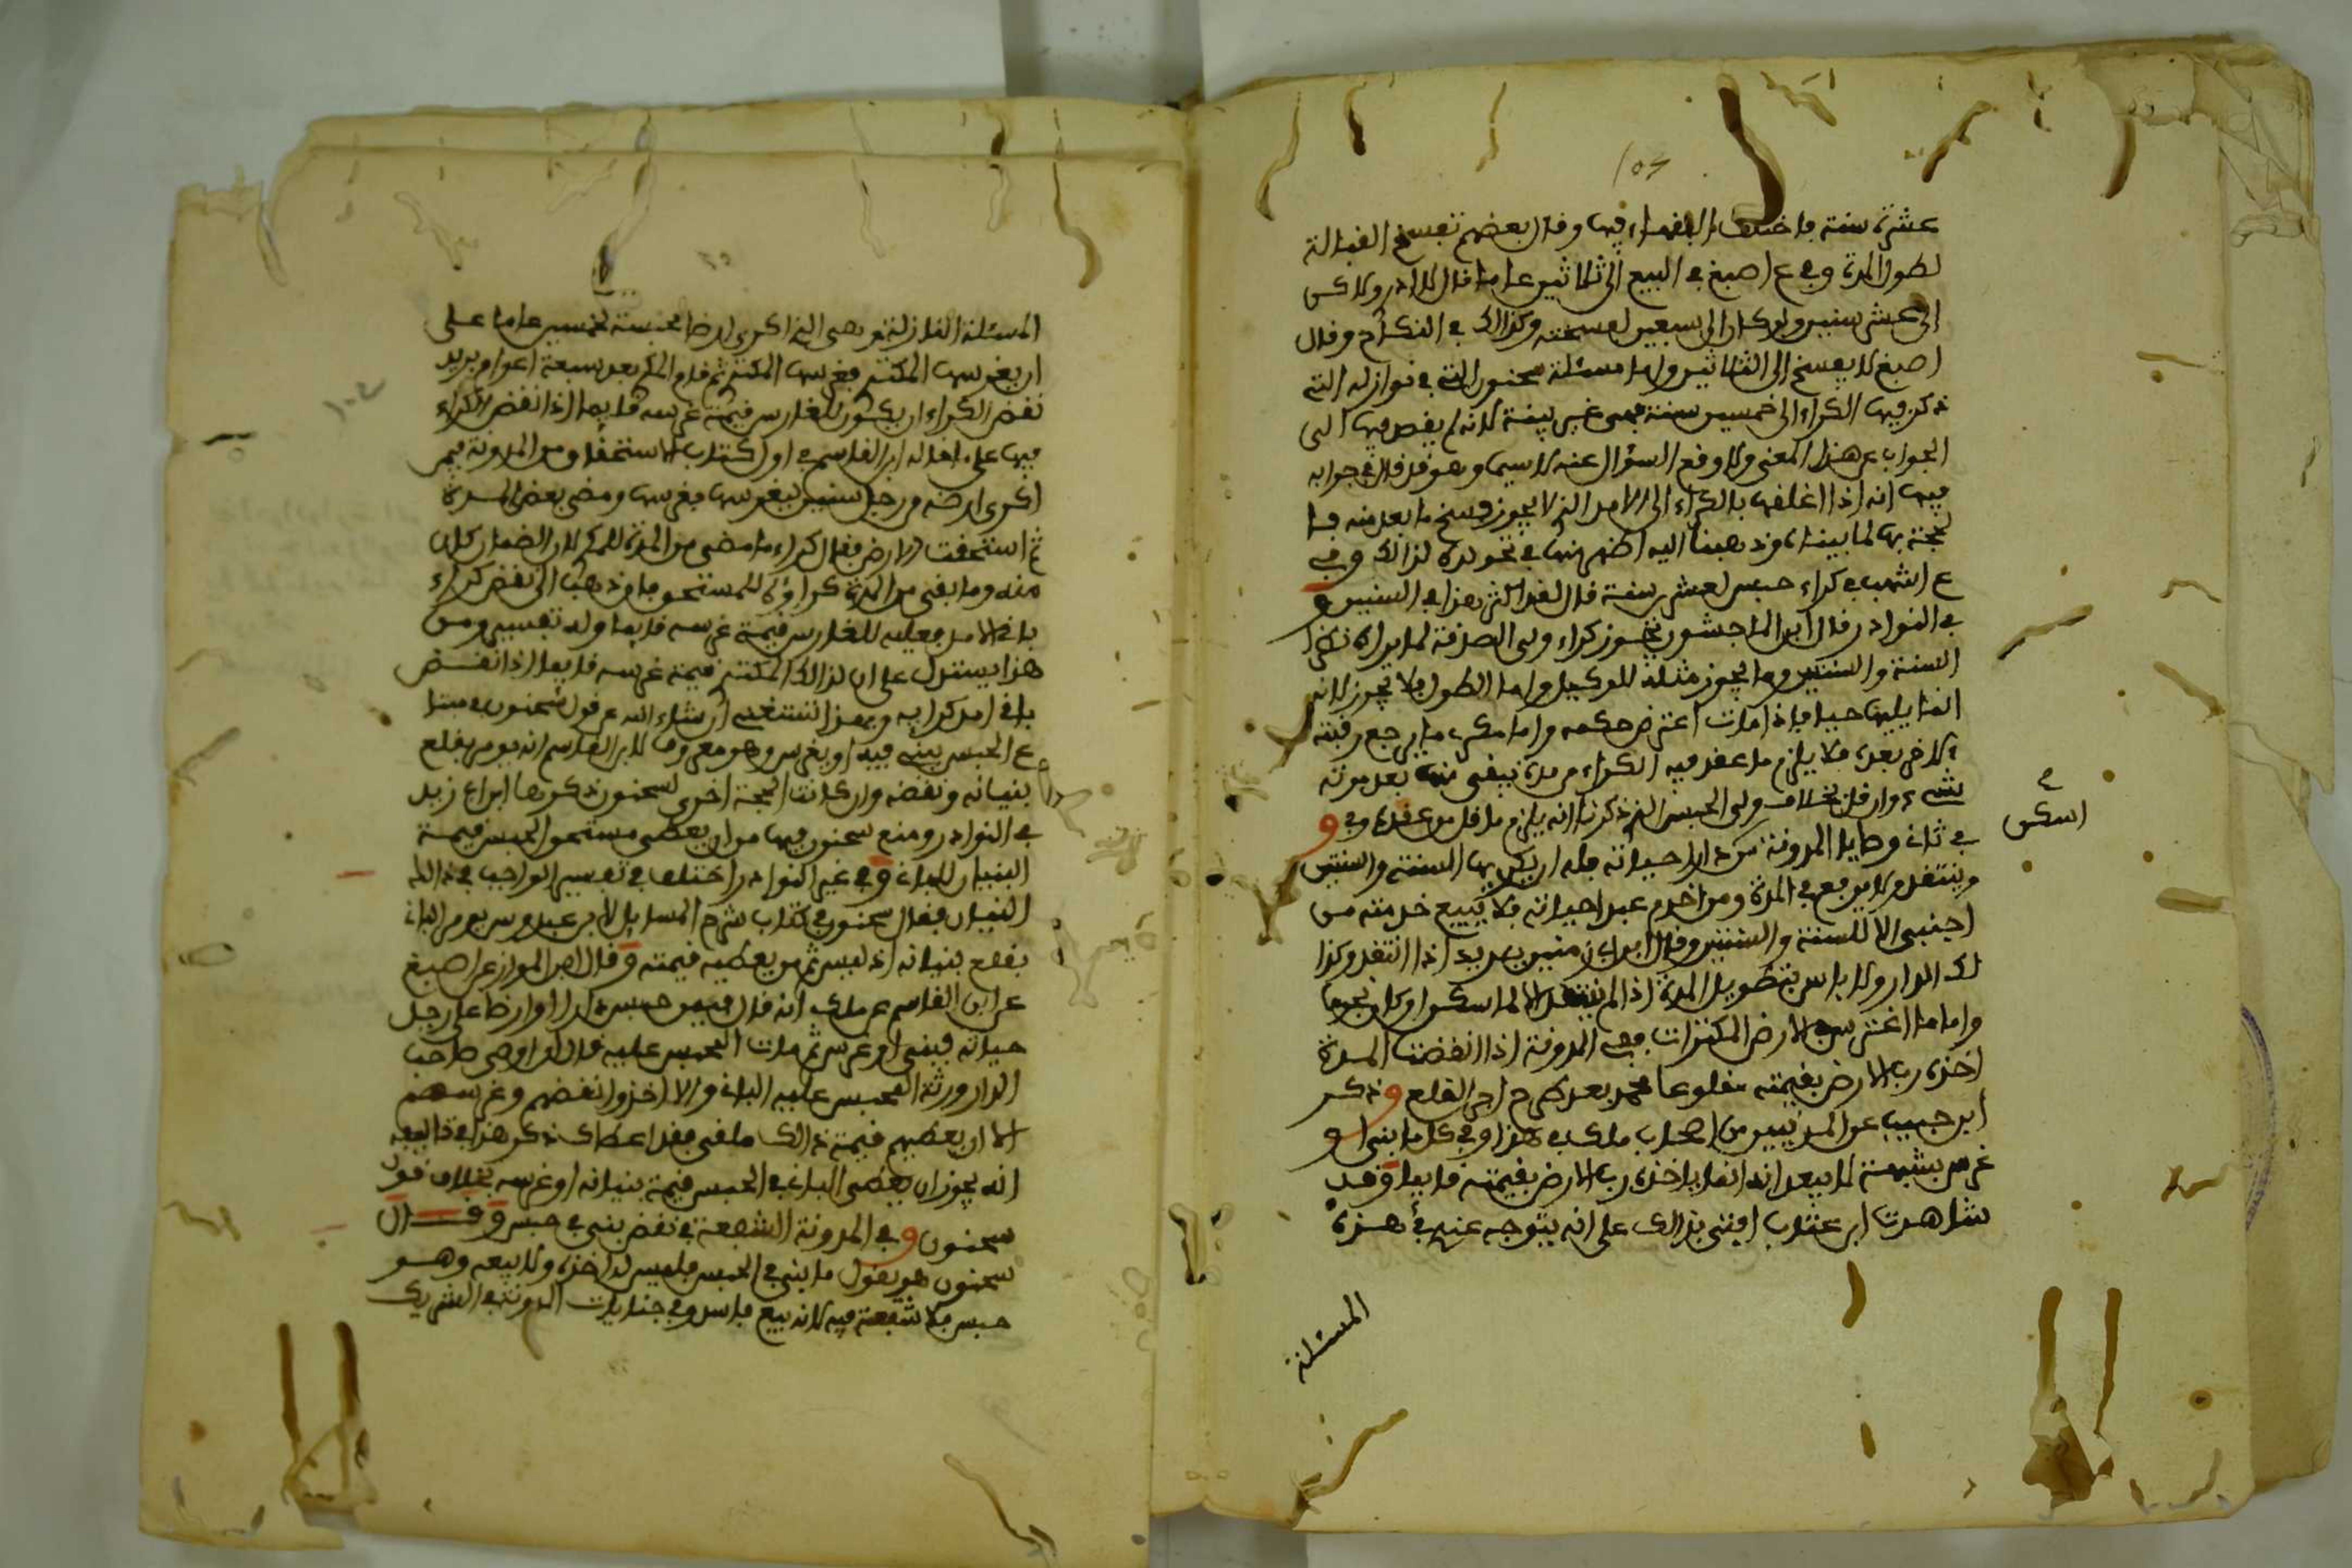 عشرة سنة فاختلف الفقهاء فيها وقال بعضهم تفسخ القبالة
لطول المدة وفي ع اصبغ في البيع الى ثلاثين عاما قال لا ادري ولاكن
الى عشر سنين ولو كان الى سبعين لفسخته وكذالك في النكاح وقال
اصبغ لا يفسخ الى الثلاثين واما مسئلة سحنون التي في نوازله التي
ذكر فيها الكراء الى خمسين سنة فهي غير بينة لانه لم يقص فيها الى
الجواب عن هذا المعنى ولا وقع السؤال عنه لا سيما وهو قد قال في جوابه
فيها انه اذا اغلقها بالكراء الى الامد الذي لا يجوز فسخ ما بعد منه فما
لحجة بها لما بيناه وذهبنا اليه اظهر منها في نحو لذالك وفي
ع اشهب في كراء حبس لعشرين سنة قال لقد اكثر هذا في السنين و
في النوادر قال ابن الماجشون يجوز كراء ولي الصدقة لما يراه نظرا
السنة والسنتين وما يجوز مثله للوكيل واما الطول فلا يجوز لانه
انما يليها حيا فاذا مات اعترض حكمه واما مكري ما يرجع رقبته
لاخر بعده فلا يلزم ما عقد فيه الكراء من مدة يبقى منها بعد موته
شيء وان قل بخلاف ولي الحبس الذي ذكرنا انه يلزم ما قل من عقده وفي و
في ثاني وصايا المدونة من دارا حياته فله ان يكريها السنة والسنتين
وينتقد ولا يرفع في المدة ومن اخدم عبدا حياته فلا يبيع خدمته من
اجنبي الا للسنة والسنتين وقال ابن ابي زمنين يريد اذا انتقد وكذا
لك الدار ولا باس بتطويل المدة اذا لم ينتقد الا لما سكن او كان نجوما
واما ما اغترس في الارض المكتراة ففي المدونة اذا انقضت المدة
اخذه رب الارض بقيمته مقلوعا يريد بعد طرح اجر القلع وذكر
ابن حبيب عن المدنيين من اصحاب ملك في هذا وفي كل ما بني او
غرس بشبهة لا بيعد انه انما ياخذه رب الارض بقيمته قايما وقد
شاهدت ابن عتاب افتى بذالك على انه يتوجه عنده في هذه
المسئلة
اسكن
المسئلة النازلة وهي الذي اكرى ارضا محبسة لخمسين عاما على
ان يغرسها المكتري فغرسها المكتري ثم قام المكري بعد سبعة اعوام يريد
نقض الكراء ان يكون للغارس قيمة غرسه قايما اذا نقض الكراء
فيها على ما قاله ابن القاسم في اول كتاب الاستحقاق من المدونة فيمن
اكرى ارضه من رجل سنين ليغرسها فغرسها ومضى بعض المدة
ثم استحقت الارض فقال كراء ما مضى من المدة للمكري لان الضمان كان
منه وما بقي من المدة كراؤه للمستحق فان ذهب الى نقض كراء
باقي الامد فعليه للغارس قيمة غرسه قايما وله تفسير ومن
هذا يستدل على ان لذالك المكتري قيمة غرسه قايما اذا نقض
باقي امد كرايه وبهذا نستغني ان شاء الله عن قول سحنون في مسئلة
ع الحبس يبنى فيه او يغرس وهو معروف لابن القاسم انه يومر بقلع
بنيانه ونقضه وان كانت الحجة اخرى لسحنون ذكرها ابن ابي زيد
في النوادر ومنع سحنون فيها من ان يعطي مستحق الحبس قيمة
البنيان للباني وفي غير النوادر اختلف في تفسير الواجب في ذالك
البنيان فقال سحنون في كتاب شرح المسايل لابن عبدوس يومر الباني
بقلع بنيانه اذ ليس ثم من يعطيه قيمته وقال ابن المواز عن اصبغ
عن ابن القاسم عن ملك انه قال فيمن حبس دارا او ارضا على رجل
حياته فبنى او غرس ثم مات المحبس عليه قال ان اوصى صاحب
الدار ورثة المحبس عليه الباني والا اخذوا نقضهم وغرسهم
الا ان يعطيهم قيمة ذالك ملقى فقد اعطاك ذكر هذا في ذا البيعه
انه يجوز ان يعطى الباني في الحبس قيمة بنيانه او غرسه بخلاف قول
سحنون وفي المدونة الشفعة في نقض بني في حبس وقال
سحنون هو يقول ما بني في الحبس فليس له اخذه ولا بيعه وهو
حبس فلا شفعة فيه لانه بيع فاسد وفي جنايات المدونة في الشريك